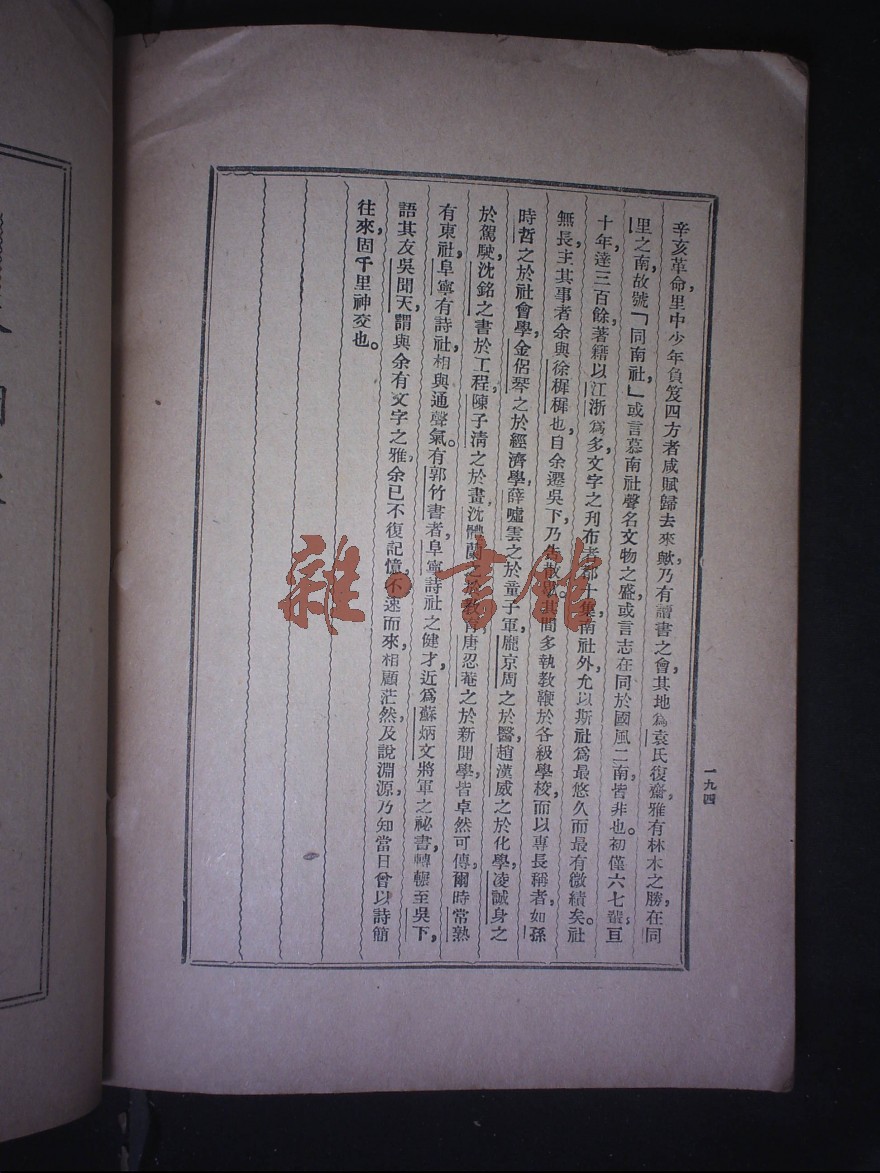 辛亥革命，里中少年負笈四方者咸賦歸去來歟，乃有讀書之會，其地為袁氏復齋，雅有林木之勝，在同
里之南，故號「同南社，」或言慕南社聲名文物之盛，或言志在同於國風二南，皆非也。初僅六七輩，亙
十年，達三百餘，著籍以江浙為多，文字之刋布者都十集，南社外，允以斯社為最悠久而最有微績矣。社
無長，主其事者余與徐穉穉也，自余遷吳下，乃告散。其間多執教鞭於各級學校，而以專長稱者，如孫
時哲之於社會學，金侶琴之於經濟學，薛噓雲之於童子軍，龐京周之於醫，趙漢威之於化學，凌誠身之
於駕駛，沈銘之書於工程，陳子清之於畫，沈體蘭之於教育，唐忍菴之於新聞學，皆卓然可傳，爾時常熟
有東社，阜寧有詩社，相與通聲氣。有郭竹書者，阜寧詩社之健才，近為蘇炳文將軍之祕書，轉輾至吳下，
語其友吳聞天，謂與余有文字之雅，余已不復記憶，不速而來，相顧茫然，及說淵源，乃知當日曾以詩簡
往來，固千里神交也。
一九四
雜·書館